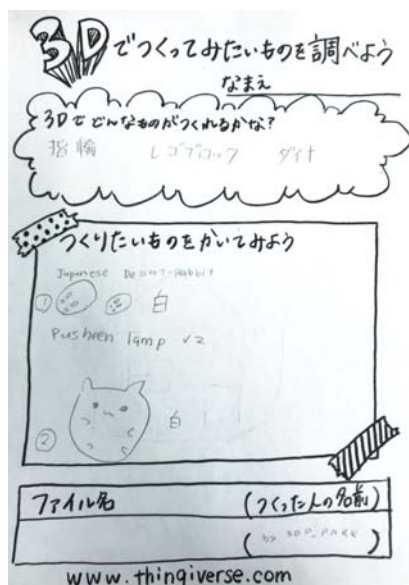 3Dでつくってみたいものを調べよう
なまえ
3Dでどんなものがつくれるかな?
指輪 レゴブロック
つくりたいものをかいてみよう
Japanese Dessert-Rabbit
① 白
Pusheen lamp v2
② 白
ファイル名 (つくった人の名前)
( by )
www.thingiverse.com